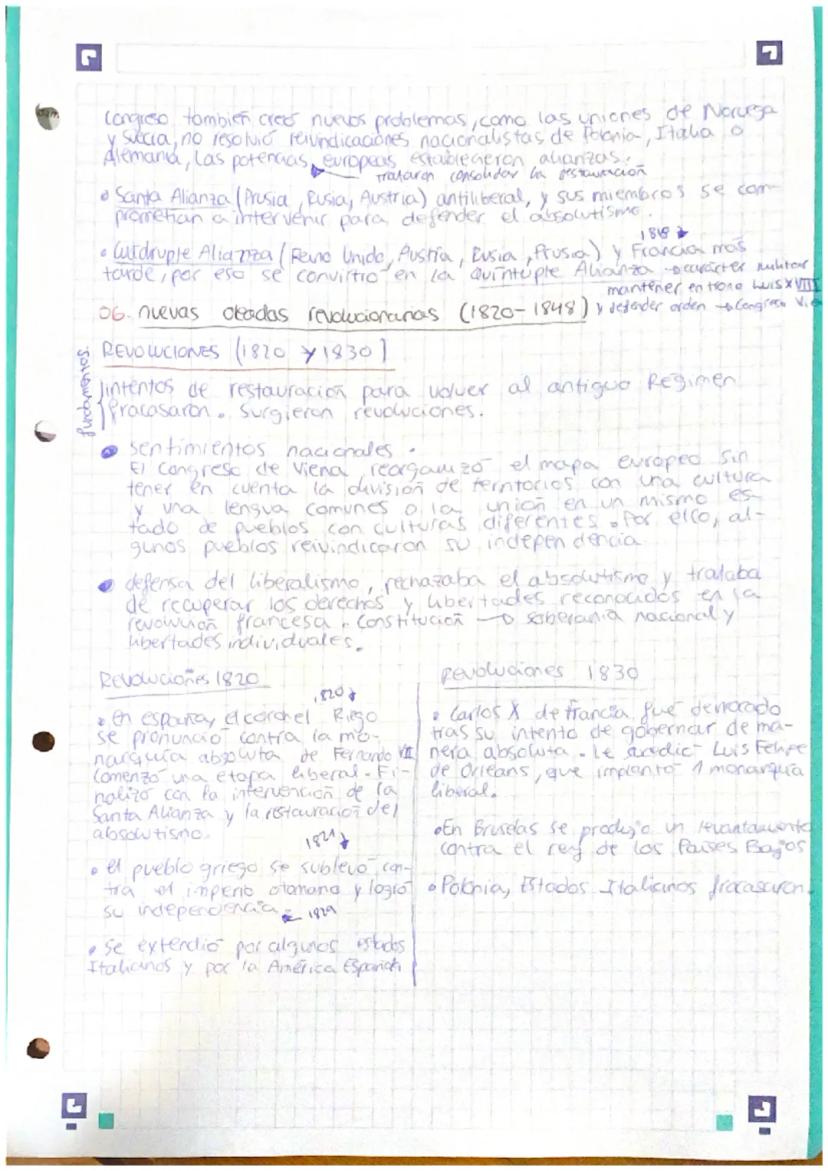 Congreso también creó nuevos problemas, como las uniones de Noruega
y Suecia, no resolvió reivindicaciones nacionalistas de Polonia, Italia o
Alemania, Las potencias europeas establecieron alianzas.
trataron consolidar la restauración
• Santa Alianza (Prusia, Rusia, Austria) antiliberal, y sus miembros se com-
prometían a intervenir para defender el absolutismo.
1818
• Cuádruple Alianza (Reino Unido, Austria, Rusia, Prusia) y Francia más
tarde, por eso se convirtió en la Quíntuple Alianza → carácter militar
mantener en trono Luis XVIII
06. nuevas oleadas revolucionarias (1820-1848) y defender orden → Congreso Vie
REVOLUCIONES (1820 y 1830)
fundamentos.
intentos de restauración para volver al antiguo Régimen
fracasaron. Surgieron revoluciones.
• sentimientos nacionales.
El Congreso de Viena reorganizó el mapa europeo sin
tener en cuenta la división de territorios con una cultura
y una lengua comunes o la unión en un mismo es-
tado de pueblos con culturas diferentes. Por ello, al-
gunos pueblos reivindicaron su independencia
• defensa del liberalismo, rechazaba el absolutismo y trataba
de recuperar los derechos y libertades reconocidos en la
revolución francesa. Constitución → soberanía nacional y
libertades individuales.
Revoluciones 1820
1820
• En españa, el coronel Riego
se pronunció contra la mo-
narquía absoluta de Fernando VII
Comenzó una etapa liberal. Fi-
nalizó con la intervención de la
Santa Alianza y la restauración del
absolutismo.
1821
• el pueblo griego se sublevó con-
tra el imperio otomano y logró
su independencia. 1829
• Se extendió por algunos estados
Italianos y por la América Española
revoluciones 1830
• Carlos X de Francia fue derrocado
tras su intento de gobernar de ma-
nera absoluta. Le sucedió Luis Felipe
de Orleans, que implantó 1 monarquía
liberal.
• En Bruselas se produjo un levantamiento
contra el rey de los Países Bajos
• Polonia, Estados Italianos fracasaron